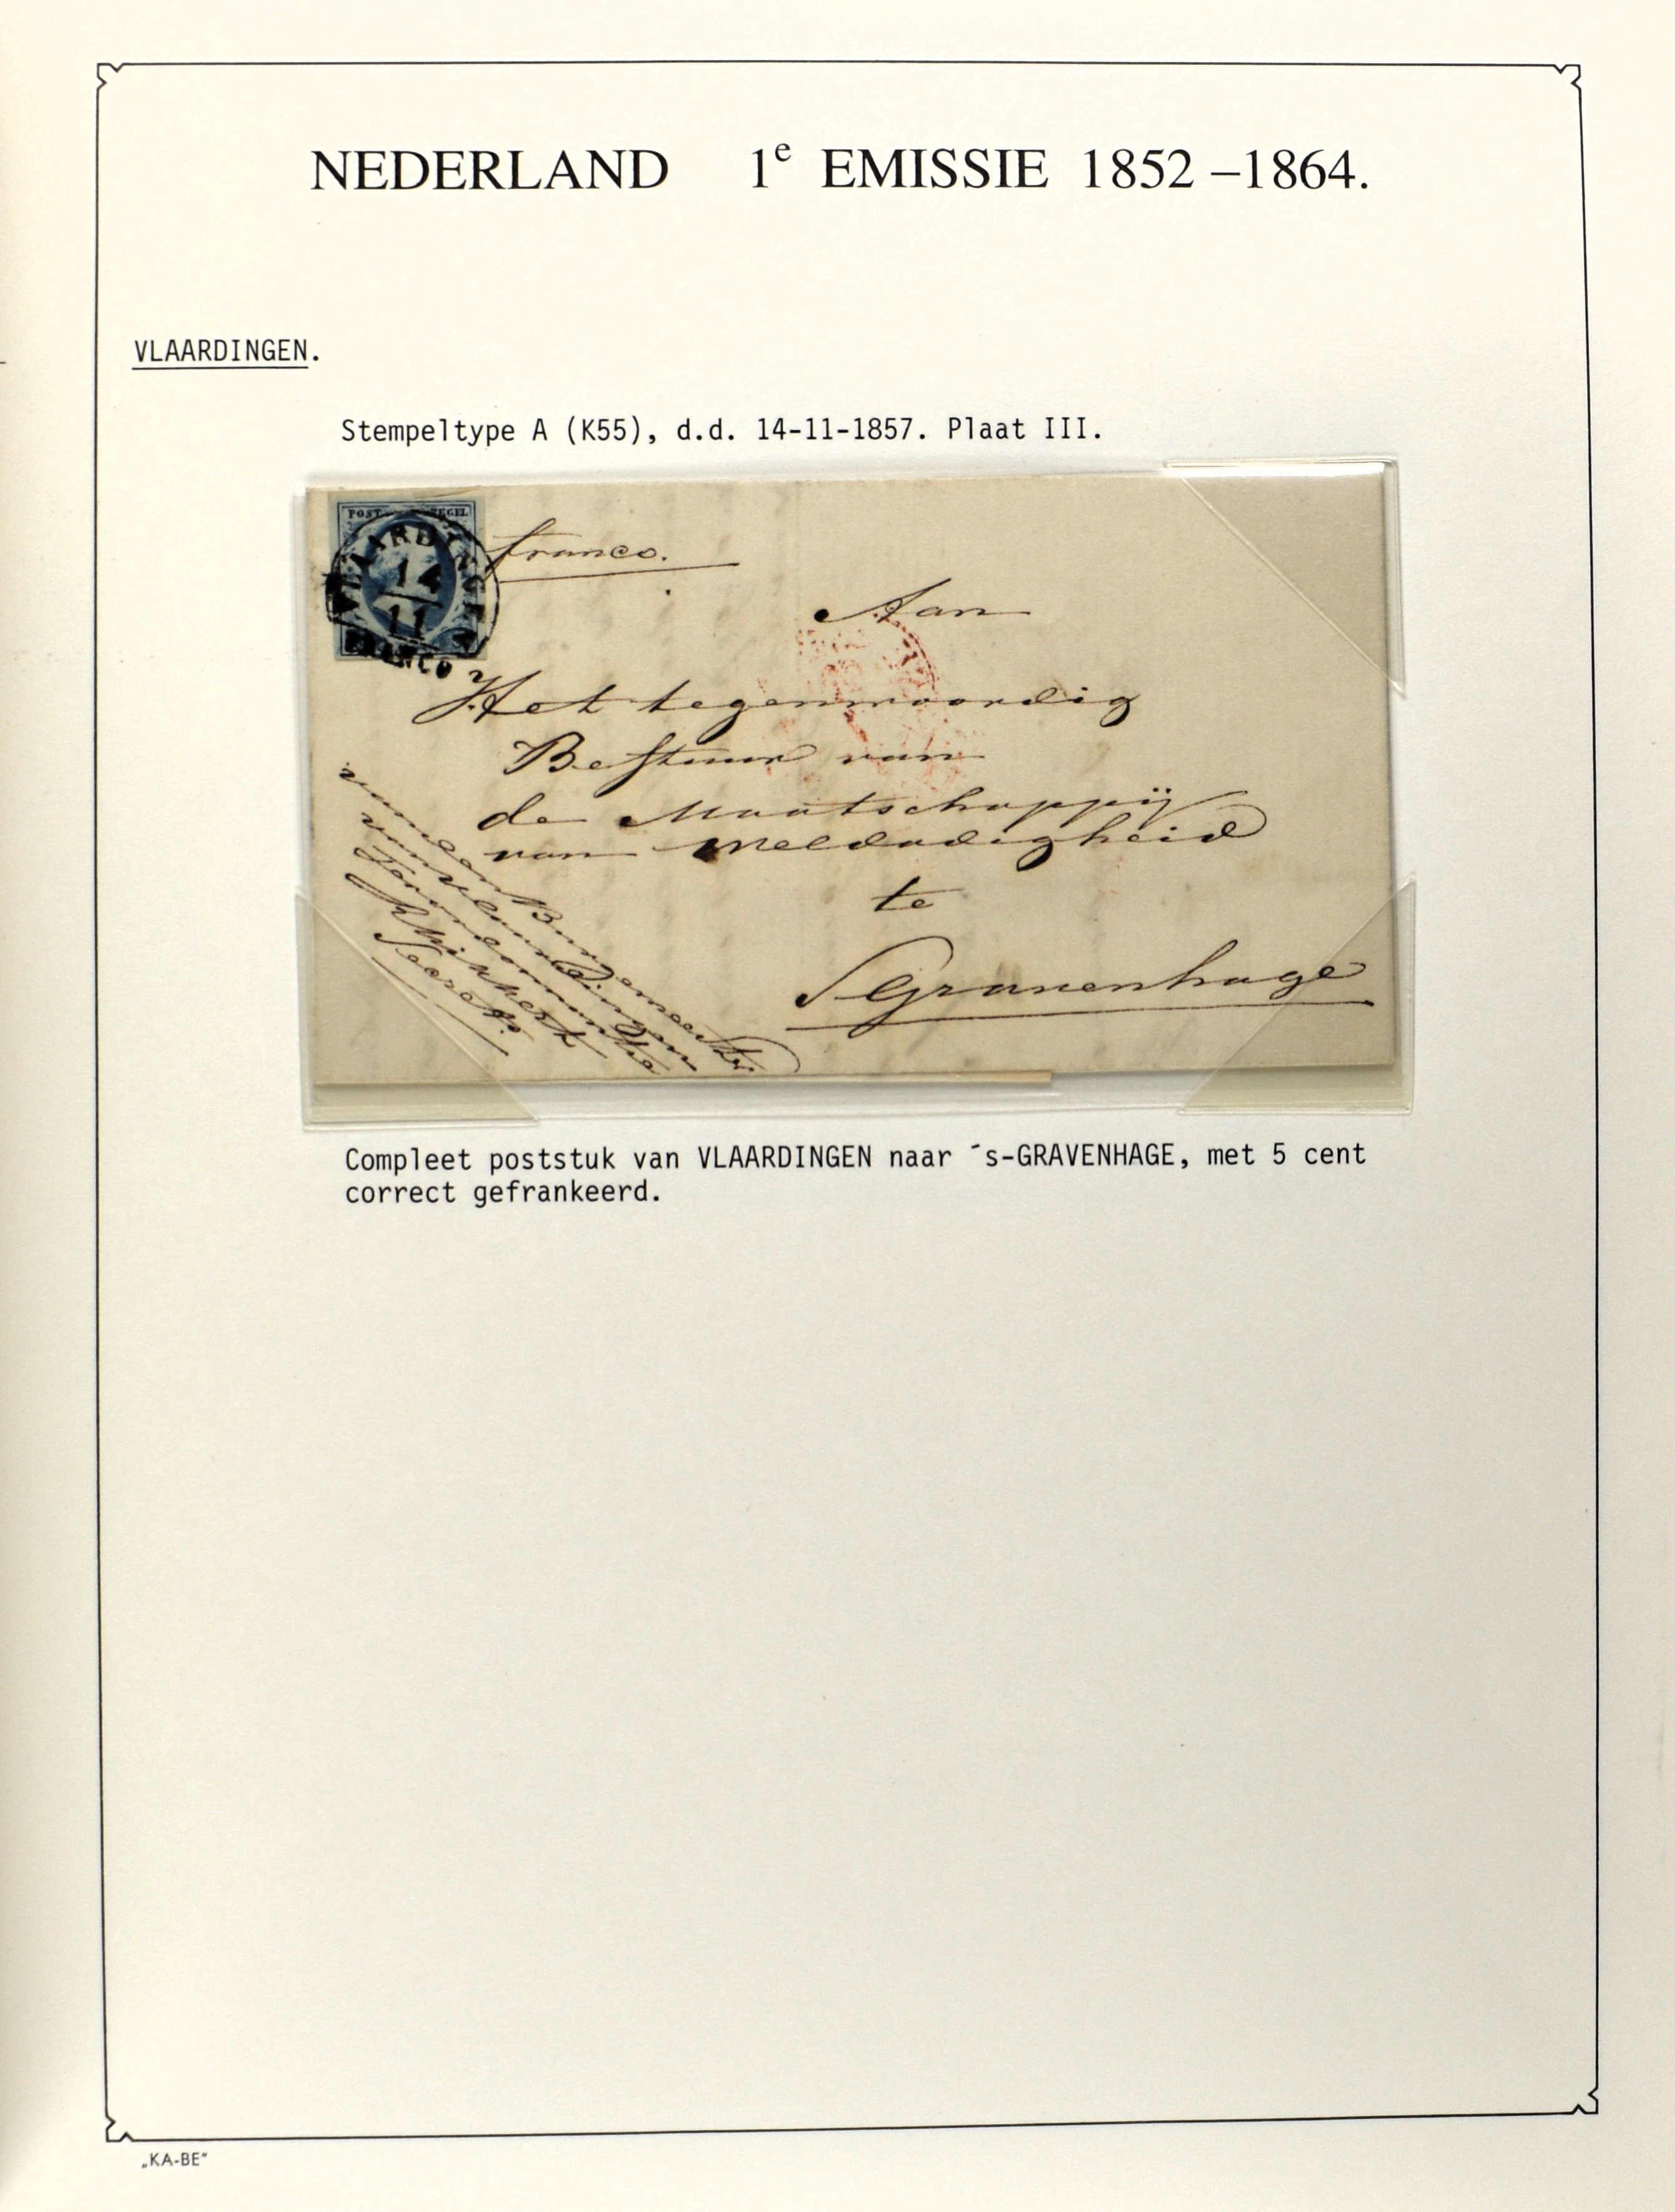 NEDERLAND 1e EMISSIE 1852 –1864.
VLAARDINGEN.
Stempeltype A (K55), d.d. 14-11-1857. Plaat III.
POST ZEGEL
VLAARDINGEN
14
11
FRANCO
franco.
Aan
Het tegenwoordig
Bestuur van
de Maatschappij
van Weldadigheid
te
S Gravenhage
van den Burgemeester
van
Secrets.
Compleet poststuk van VLAARDINGEN naar ´s-GRAVENHAGE, met 5 cent
correct gefrankeerd.
„KA-BE"